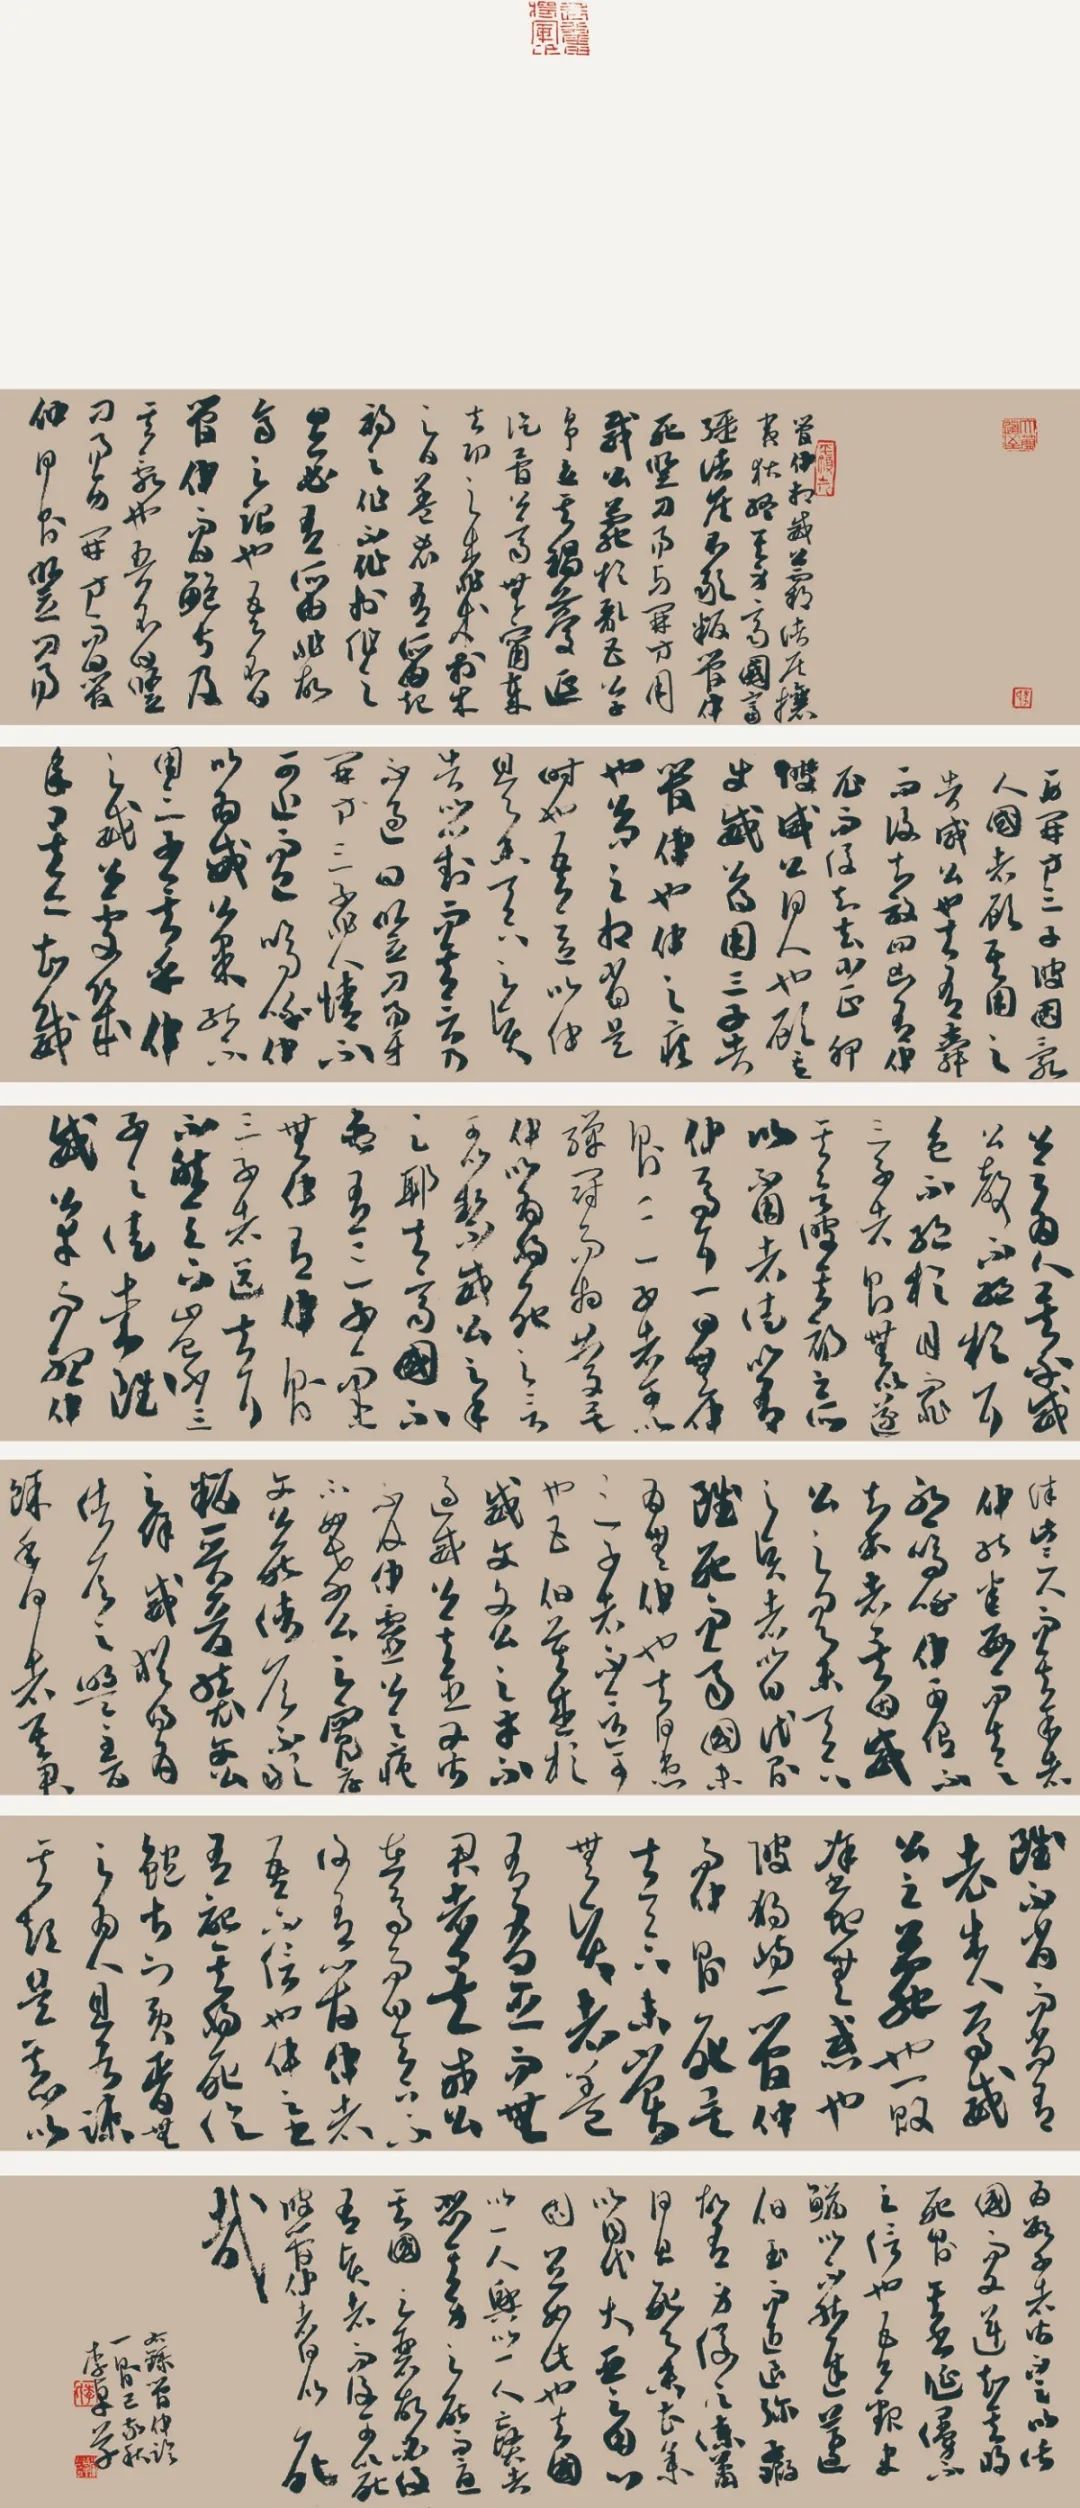 管仲相威公霸諸侯攘
夷狄終其身齊國富
強諸侯不敢叛管仲
死豎刁易牙開方用
威公薨於亂五公子
爭立其禍蔓延
訖簡公齊無寧歲
夫功之成非成於成
之日蓋必有所由起
禍之作不作於作之
日必有所由兆故
齊之治也吾不曰
管仲而曰鮑叔及
其亂也吾不曰豎
刁易牙開方而曰管
仲何則豎刁易
牙開方三子彼固亂
人國者顧其用之
者威公也夫有舜
而後知放四凶有仲
尼而後知去少正卯
彼威公何人也顧其
使威公用三子者
管仲也仲之疾
也公之相當是
時也吾意以仲
且舉天下之賢
者以對而其言乃
不過曰豎刁易牙
開方三子非人情不
可近而已嗚呼仲
以為威公果能不
用三子矣乎仲
與威公處幾
年矣亦知威
公之為人矣乎威
公聲不絕於耳
色不絕於目而非
三子者則無以遂
其欲彼其初之所
以不用者徒以有
仲焉耳一日無仲
則三子者可以
彈冠而相慶矣
仲以為將死之言
可以縶威公之手
足耶夫齊國不
患有三子而患
無仲有仲則
三子者三匹夫耳
不然天下豈少三
子之徒哉雖
威公幸而聽仲
誅此三人而其餘者
仲能悉數而去之
耶嗚呼仲可謂不
知本者矣因威
公之問舉天下
之賢者以自代則仲
雖死而齊國未
為無仲也夫何患
三子者不言可
也五伯莫盛於
威文文公之才不
過威公其臣又皆
不及仲靈公之虐
不如孝公之寬厚
文公死諸侯不敢
叛晉晉襲文公
之餘威猶得為
諸侯之盟主百
餘年何者其君
雖不肖而尚有
老成人焉威
公之薨也一敗
塗地無惑也
彼獨恃一管仲
而仲則死矣
夫天下未嘗
無賢者蓋
有有臣而無
君者矣威公
在焉而曰天下不
復有管仲者
吾不信也仲之書
有記其將死論
鮑叔賓胥無
之為人且各疏
其短是其心以
為數子者皆不足以託
國而又逆知其將
死則其書誕謾不
足信也吾觀史
鰌以不能進蘧
伯玉而退彌子瑕
故有身後之諫蕭
何且死舉曹參
以自代大臣之用心
固宜如此也夫國
以一人興以一人亡賢者
不悲其身之死而憂
其國之衰故必復
有賢者而後可以死
彼管仲者何以死
哉
蘇管仲論
一則己亥秋